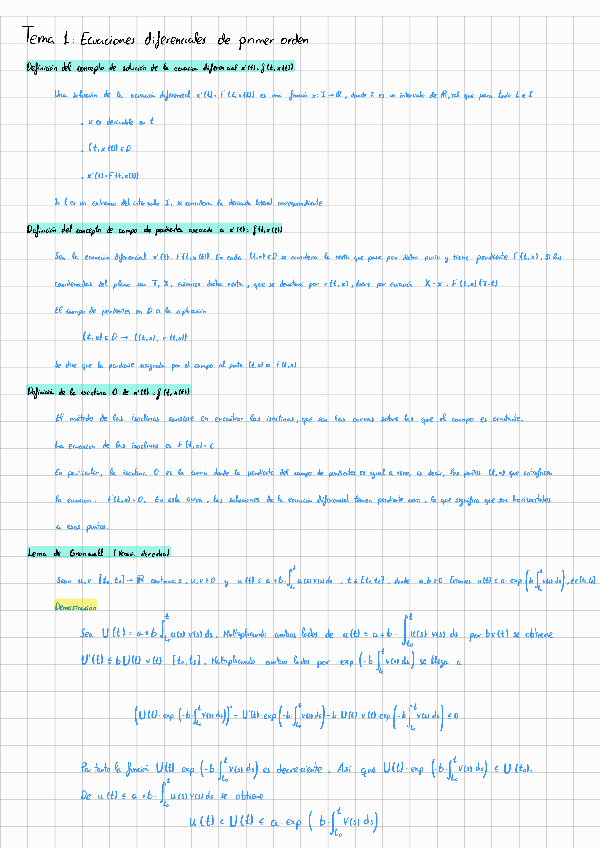 Tema 1: Ecuaciones diferenciales de primer orden
Definición del concepto de solución de la ecuación diferencial x'(t) = f(t, x(t))
Una solución de la ecuación diferencial x'(t) = F(t, x(t)) es una función x: I → ℝ, donde I es un intervalo de ℝ, tal que para todo t ∈ I
· x es derivable en t
· (t, x(t)) ∈ D
· x'(t) = F(t, x(t))
Si t es un extremo del intervalo I, se considera la derivada lateral correspondiente
Definición del concepto de campo de pendientes asociado a x'(t) = f(t, x(t))
Sea la ecuación diferencial x'(t) = F(t, x(t)). En cada (t, x) ∈ D se considera la recta que pasa por dicho punto y tiene pendiente F(t, x). Si las
coordenadas del plano son T, X, entonces dicha recta, que se denotará por r(t, x), tiene por ecuación X - x = F(t, x)(T - t)
El campo de pendientes en D es la aplicación
(t, x) ∈ D → ((t, x), r(t, x))
Se dice que la pendiente asignada por el campo al punto (t, x) es F(t, x)
Definición de la isoclina 0 de x'(t) = f(t, x(t))
El método de las isoclinas consiste en encontrar las isoclinas, que son las curvas sobre las que el campo es constante.
La ecuación de las isoclinas es F(t, x) = c
En particular, la isoclina 0 es la curva donde la pendiente del campo de pendientes es igual a cero, es decir, los puntos (t, x) que satisfacen
la ecuación F(t, x) = 0. En esta curva, las soluciones de la ecuación diferencial tienen pendiente cero, lo que significa que son horizontales
a esos puntos.
Lema de Gronwall (versión derecha)
Sean u, v: [t₀, t₁] → ℝ continuas, u, v ≥ 0 y u(t) ≤ a + b · ∫_{t₀}^{t} u(s) v(s) ds, t ∈ [t₀, t₁], donde a, b ≥ 0. Entonces u(t) ≤ a · exp (b ∫_{t₀}^{t} v(s) ds), t ∈ [t₀, t₁]
Demostración
Sea U(t) = a + b ∫_{t₀}^{t} u(s) v(s) ds. Multiplicando ambos lados de u(t) ≤ a + b · ∫_{t₀}^{t} u(s) v(s) ds por b v(t) se obtiene
U'(t) ≤ b U(t) v(t) [t₀, t₁]. Multiplicando ambos lados por exp (-b ∫_{t₀}^{t} v(s) ds) se llega a
(U(t) · exp (-b · ∫_{t₀}^{t} v(s) ds))' = U'(t) · exp (-b · ∫_{t₀}^{t} v(s) ds) - b U(t) v(t) exp (-b · ∫_{t₀}^{t} v(s) ds) ≤ 0
Por tanto la función U(t) exp (-b · ∫_{t₀}^{t} v(s) ds) es decreciente. Así que U(t) · exp (-b · ∫_{t₀}^{t} v(s) ds) ≤ U(t₀).
De u(t) ≤ a + b · ∫_{t₀}^{t} u(s) v(s) ds se obtiene
u(t) ≤ U(t) ≤ a · exp (b · ∫_{t₀}^{t} v(s) ds)